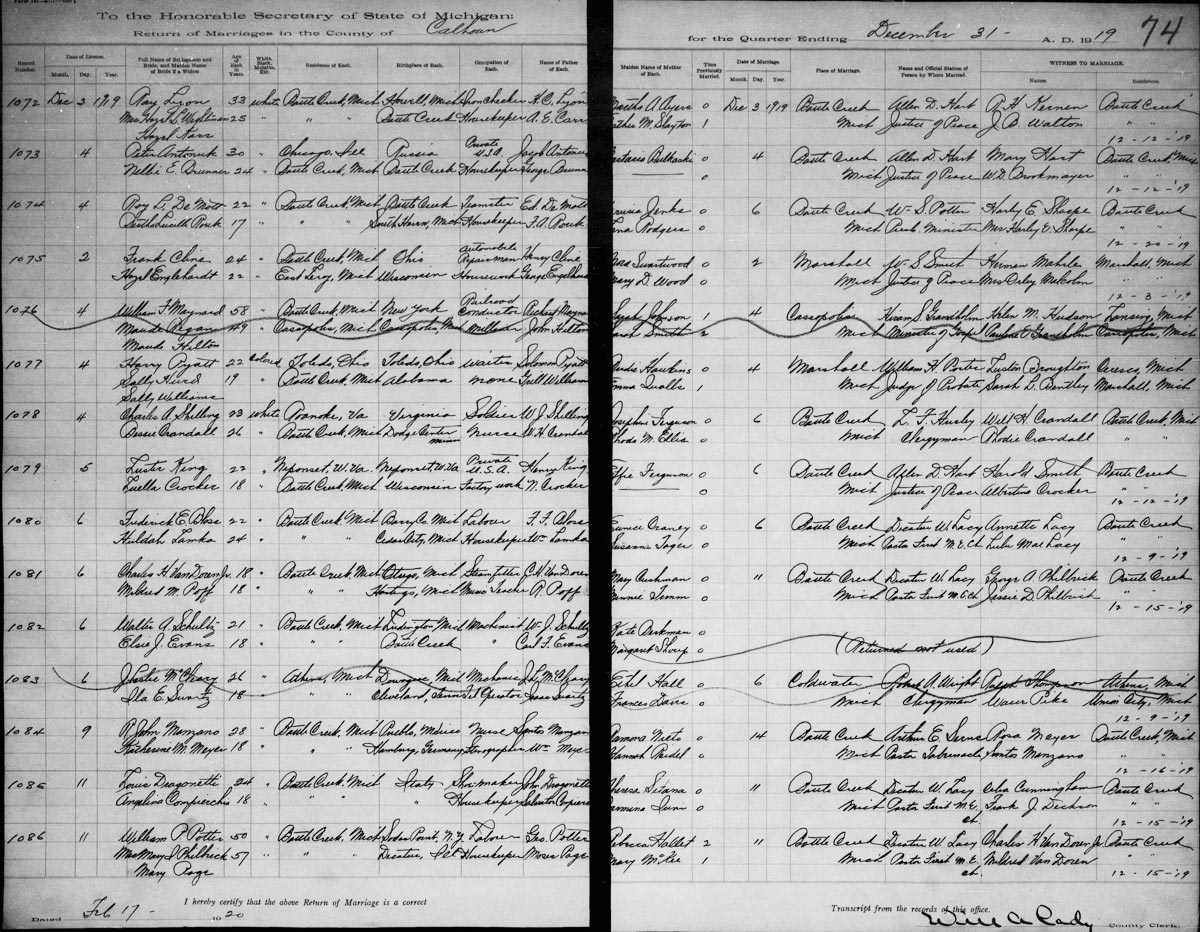 To the Honorable Secretary of State of Michigan:
Return of Marriages in the County of Calhoun for the Quarter Ending December 31 - A. D. 1919 74
Record Number. Date of License. Month. Day. Year. Full Name of Bridegroom and Bride, and Maiden Name of Bride if a Widow. Age of Each in Years. White, Black, Mulatto, Etc. Residence of Each. Birthplace of Each. Occupation of Each. Name of Father of Each. Maiden Name of Mother of Each. Times Previously Married. Date of Marriage. Month. Day. Year. Place of Marriage. Name and Official Station of Person by Whom Married. WITNESS TO MARRIAGE. Names. Residence.
1072 Dec 3 1919 Ray Lyon 33 White Battle Creek, Mich Howell, Mich Iron checker H. C. Lyon Martha A Ayers 0 Dec 3 1919 Battle Creek Allen D. Hart R H Kernen Battle Creek
Mrs Hazel S. 25 " " " Battle Creek Housekeeper A. E. Carr M. Slayton 1 Mich Justice of Peace J. B Walton " "
Hazel 12-12-'19
1073 4 Peter Antonuk 30 " Chicago, Ill Russia Private U.S.A. Joseph 0 4 Battle Creek Allen D. Hart Mary Hart Battle Creek, Mich
Nellie E. Brunner 24 " Battle Creek, Mich Battle Creek Housekeeper George 0 Mich Justice of Peace W. D Brookmayer " "
12-12-'19
1074 4 Roy L. De Mott 22 " Battle Creek, Mich Battle Creek Teamster Ed De Mott Jenks 0 6 Battle Creek Wm S. Potter Harley E. Sharpe Battle Creek
17 " " " Mich Housekeeper F. A. Rouk Rodgers 0 Mich Minister Mrs Harley E. Sharpe " "
12-20-'19
1075 2 Frank Cline 24 " Battle Creek, Mich Ohio Automobile Repairman Henry Cline Swartwood 0 2 Marshall W. S Smith Herman Mahrle Marshall, Mich
Hazel Englehardt 22 " East Leroy, Mich Wisconsin Housework George Mary D. Wood 0 Mich Justice of Peace Mrs Orley Malcolm " "
12-3-'19
1076 4 William F Maynard 58 " Battle Creek, Mich New York Railroad Conductor Richard Johnson 1 4 Cassopolis Hiram S. Helen M. Hudson Lansing, Mich
Maude Regan 49 " Cassopolis, Mich Cassopolis, Mich Milliner John Hilton Sarah Smith 2 Mich Minister of Gospel Cassopolis, Mich
Maude Hilton
1077 4 Harry Pyatt 22 Colored Toledo, Ohio Toledo, Ohio Waiter Solomon Pyatt Hawkins 0 4 Marshall William H. Porter Luston Broughton Ceresco, Mich
Sally Hurd 19 " Battle Creek, Mich Alabama none Williams Emma 1 Mich Judge of Probate Sarah L. Bentley Marshall, Mich
Sally Williams
1078 4 Charles A. Shilling 23 White Roanoke, Va Virginia Soldier W. J Shilling Josephine Ferguson 0 6 Battle Creek L. F. Hurley Will H. Crandall Battle Creek, Mich
Bessie Crandall 26 " Battle Creek, Mich Dodge Center Minn Nurse W. H. Crandall M. Ellis 0 Mich Clergyman Rhodie Crandall " "
1079 5 Luster King 22 " Neponset, W. Va Neponset, W. Va Private U. S. A. Henry King Effie Ferguson 0 6 Battle Creek Allen D. Hart Harold Smith Battle Creek
Luella Crocker 18 " Battle Creek, Mich Wisconsin Factory work N. Crocker 0 Mich Justice of Peace Albertina Crocker " "
12-12-'19
1080 6 Frederick E. 22 " Battle Creek, Mich Barry Co. Mich Laborer F. F. Eunice Craney 0 6 Battle Creek Decatur W. Lacy Annette Lacy Battle Creek
Huldah Lamka 24 " " " City, Mich Housekeeper Wm Lamka Susanna 0 Mich Pastor First M. E. Ch Mae Lacy " "
12-9-'19
1081 6 Charles H. Van Doren Jr. 18 " Battle Creek, Mich Otsego, Mich Steamfitter C. H. Van Doren Mary Cushman 0 11 Battle Creek Decatur W. Lacy George A Philbrick Battle Creek
Mildred M. Poff 18 " " " Hastings, Mich Music Teacher R. Poff Minnie Temm 0 Mich Pastor First M. E. Ch Jessie D Philbrick " "
12-15-'19
1082 6 Walter A. Schultz 21 " Battle Creek, Mich Ludington, Mich Machinist W. J. Schultz Kate Berkman 0
Elsie J. Evans 18 " " " Battle Creek Carl F. Evans Margaret 0 (Returned not used)
1083 6 J Leslie McCleary 26 " Athens, Mich Dowagiac, Mich Mechanic J. L. McCleary Ethel Hall 0 6 Coldwater Robert A. Wright Ralph Thompson Athens, Mich
Ila E. Swartz 18 " " " Cleveland, Tel Operator Isaac Swartz Frances Davis 0 Mich Clergyman Pike Union City, Mich
12-9-'19
1084 9 R. John Manzano 28 " Battle Creek, Mich Puebla, Mexico Nurse Santos Manzano Ramona Nieto 0 14 Battle Creek Arthur E. Rosa Meyer Battle Creek, Mich
Katherine M. Meyer 18 " " " Hamburg, Germany Stenographer Wm Meyer Hannah Reidel 0 Mich Pastor Tabernacle Santos Manzano " "
12-16-'19
1085 11 Louis Dragonetti 24 " Battle Creek, Mich Italy Shoemaker John Dragonetti Theresa 0 11 Battle Creek Decatur W. Lacy Celia Cunningham Battle Creek
Angelina 18 " " " " Housekeeper Salvator 0 Mich Pastor First M. E. Ch. Frank J. Dickson " "
12-15-'19
1086 11 William P. Potter 50 " Battle Creek, Mich Sodus Point, N. Y Laborer Geo. Potter Rebecca Hallet 2 11 Battle Creek Decatur W. Lacy Charles H. Van Doren Jr Battle Creek
Mrs Mary J Philbrick 57 " " " Decatur, Ill Housekeeper Moses Page Mary McKee 1 Mich Pastor First M. E. Ch. Mildred Van Doren " "
Mary Page 12-15-'19
I hereby certify that the above Return of Marriage is a correct Transcript from the records of this office.
Dated Feb 17 - 1920 County Clerk.